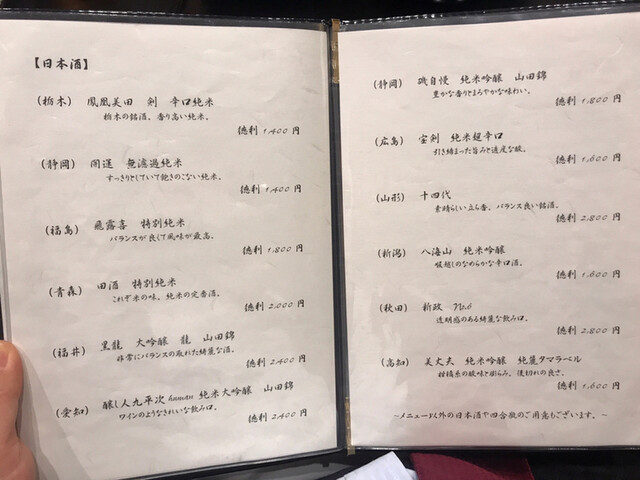 【日本酒】
(栃木) 鳳凰美田 剣 辛口純米
栃木の銘酒。香り高い純米。
徳利 1,400 円
(静岡) 開運 無濾過純米
すっきりとしていて飽きのこない純米。
徳利 1,400 円
(福島) 飛露喜 特別純米
バランスが良くて風味が最高。
徳利 1,800 円
(青森) 田酒 特別純米
これぞ米の味。純米の定番酒。
徳利 2,000 円
(福井) 黒龍 大吟醸 龍 山田錦
非常にバランスの取れた綺麗な酒。
徳利 2,400 円
(愛知) 醸し人九平次 human 純米大吟醸 山田錦
ワインのようなきれいな飲み口。
徳利 2,400 円
(静岡) 磯自慢 純米吟醸 山田錦
豊かな香りとまろやかな味わい。
徳利 1,800 円
(広島) 宝剣 純米超辛口
引き締まった旨みと適度な酸。
徳利 1,600 円
(山形) 十四代
素晴らしい立ち香。バランス良い銘酒。
徳利 2,800 円
(新潟) 八海山 純米吟醸
喉越しのなめらかな辛口酒。
徳利 1,600 円
(秋田) 新政 No.6
透明感のある綺麗な飲み口。
徳利 2,800 円
(高知) 美丈夫 純米吟醸 純麗タマラベル
柑橘系の酸味と膨らみ。後切れの良さ。
徳利 1,600 円
~メニュー以外の日本酒や四合瓶のご用意もございます。~